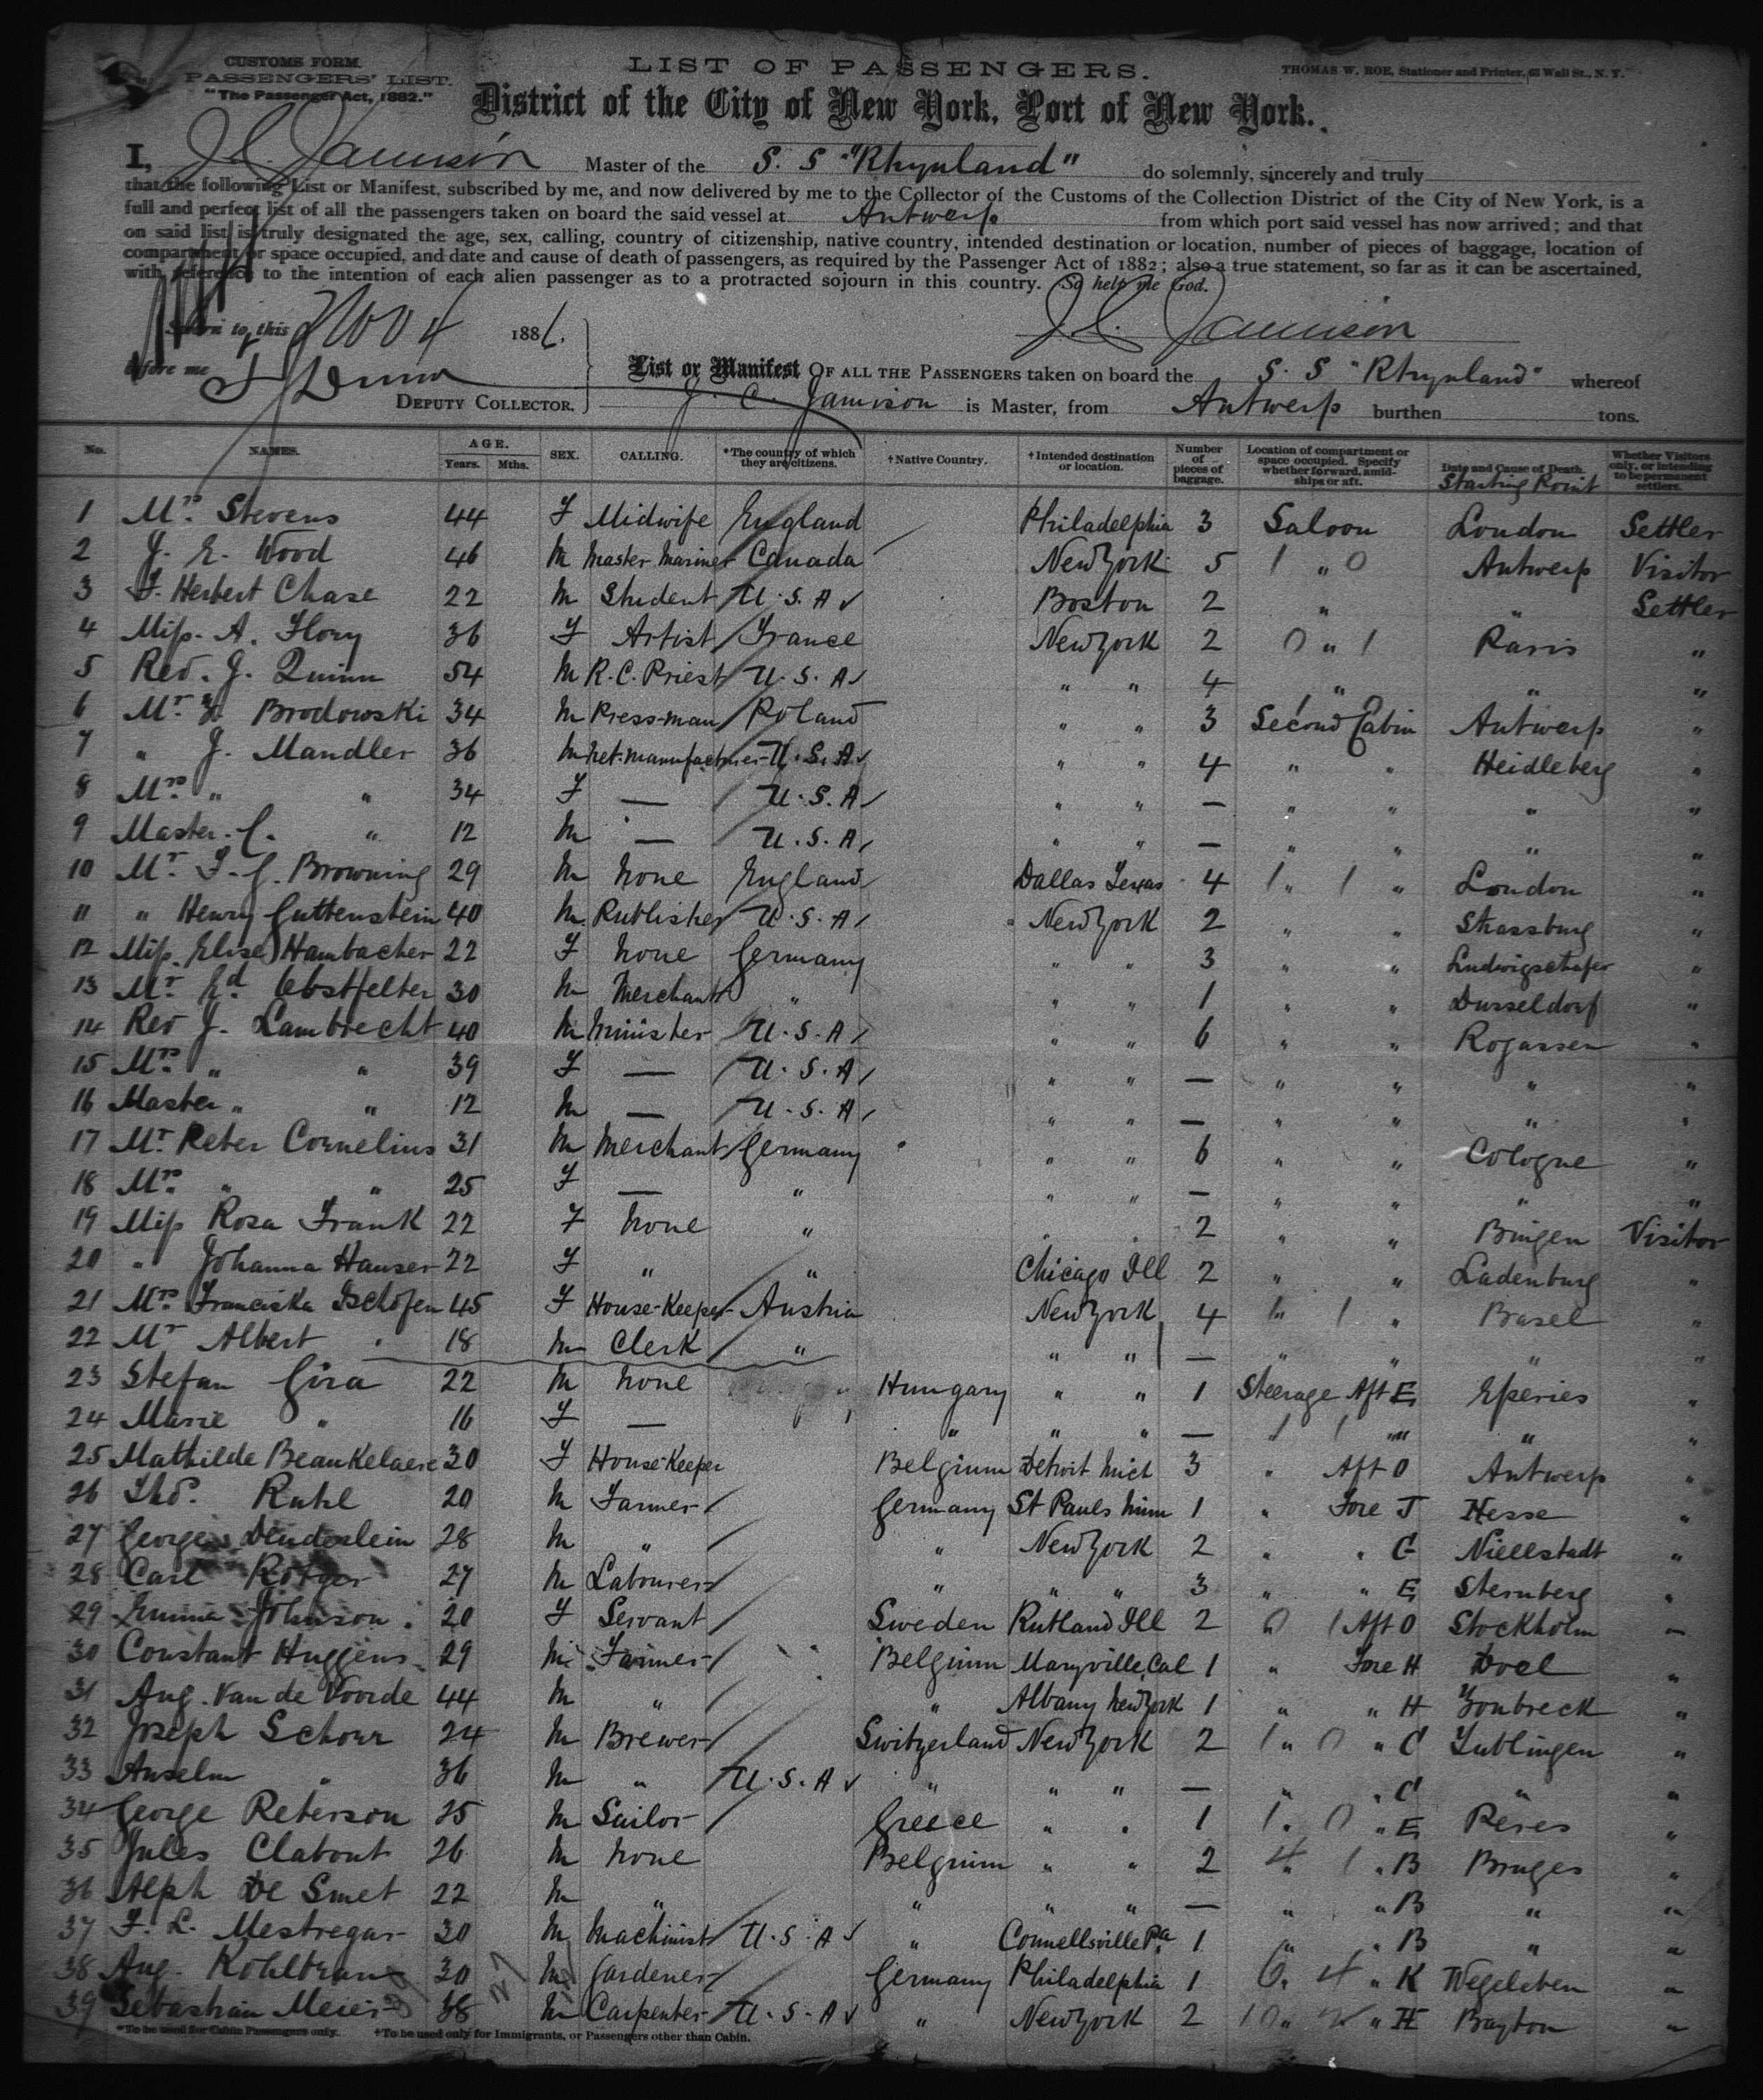 CUSTOMS FORM.
PASSENGERS' LIST.
"The Passenger Act, 1882."
LIST OF PASSENGERS.
THOMAS W. ROE, Stationer and Printer, 63 Wall St., N. Y.
District of the City of New York, Port of New York.
I, J. C. Jamison Master of the S. S "Rhynland" do solemnly, sincerely and truly
that the following List or Manifest, subscribed by me, and now delivered by me to the Collector of the Customs of the Collection District of the City of New York, is a
full and perfect list of all the passengers taken on board the said vessel at Antwerp from which port said vessel has now arrived; and that
on said list is truly designated the age, sex, calling, country of citizenship, native country, intended destination or location, number of pieces of baggage, location of
compartment or space occupied, and date and cause of death of passengers, as required by the Passenger Act of 1882; also a true statement, so far as it can be ascertained,
with reference to the intention of each alien passenger as to a protracted sojourn in this country. So help me God.
Sworn to this Nov 4 1886.
J C. Jamison
before me
DEPUTY COLLECTOR.
List or Manifest OF ALL THE PASSENGERS taken on board the S. S "Rhynland" whereof
J. C. Jamison is Master, from Antwerp burthen tons.
No. NAMES. AGE. Years. Mths. SEX. CALLING. *The country of which they are citizens. †Native Country. †Intended destination or location. Number of pieces of baggage. Location of compartment or space occupied. Specify whether forward, amidships or aft. Date and Cause of Death. Starting Point Whether Visitors only, or intending to be permanent settlers.
1 Mrs. Stevens 44 F Midwife England Philadelphia 3 Saloon London Settler
2 J. E. Wood 46 M Master Mariner Canada New York 5 1 " 0 Antwerp Visitor
3 F. Herbert Chase 22 M Student U.S.A Boston 2 " " Settler
4 Miss. A. Flory 36 F Artist France New York 2 0 " 1 Paris "
5 Rev. J. Quinn 54 M R.C. Priest U.S.A " " 4 " " "
6 Mr. Brodowski 34 M Press-man Poland " " 3 Second Cabin Antwerp "
7 " J. Mandler 36 M U.S.A " " 4 " " Heidleberg "
8 Mrs. " " 34 F — U.S.A " " — " " " "
9 Master. C. " 12 M — U.S.A " " — " " " "
10 Mr. F. G. Browning 29 M None England Dallas Texas 4 1 " 1 " London "
11 " Henry Guttenstein 40 M. Publisher U.S.A New York 2 " " Strassburg "
12 Miss. Elise Hambacher 22 F None Germany " " 3 " " Ludwigschafer "
13 Mr. Ed. Obstfelter 30 M Merchant " " " 1 " " Dusseldorf "
14 Rev J. Lambrecht 40 M Minister U.S.A " " 6 " " Rogassen "
15 Mrs. " " 39 F — U.S.A " " — " " " "
16 Master " " 12 M — U.S.A " " — " " " "
17 Mr. Peter Cornelius 31 M Merchant Germany " " 6 " " Cologne "
18 Mrs. " " 25 F — " " " — " " " "
19 Miss Rosa Frank 22 F None " " " 2 " " Bingen Visitor
20 " Johanna Hauser 22 F " " Chicago Ill 2 " " Ladenburg "
21 Mrs. Franciska Tschofen 45 F House-Keeper Austria New York 4 1 " 1 " Basel "
22 Mr Albert " 18 M Clerk " " " — " " " "
23 Stefan Gira 22 M None Hungary " " 1 Steerage Aft E Eperies "
24 Marie " 16 F — " " " — " " "
25 Mathilde Beaukelaere 30 F House-Keeper Belgium Detroit Mich 3 " Aft O Antwerp "
26 Thd. Ruhl 20 M Farmer Germany St Pauls Minn 1 " Fore J Hesse "
27 Georges Denderlein 28 M " " New York 2 " " G Niellstadt "
28 Carl Rotger 27 M Labourer " " " 3 " " E Sternberg "
29 Emma Johnson 20 F Servant Sweden Rutland Ill 2 0 1 Aft O Stockholm "
30 Constant Huggens 29 M Farmer Belgium Maryville Cal 1 " Fore H Doel "
31 Aug. Van de Voorde 44 M " " Albany New York 1 " " H Zonbreck "
32 Joseph Schorr 24 M Brewer Switzerland New York 2 1 " 0 " C Lublingen "
33 Anselm " 36 M " U.S.A " " " — " " C " "
34 George Peterson 25 M Sailor Greece " " 1 1 " 0 " E Peres "
35 Jules Clabout 26 M None Belgium " " 2 4 " 1 " B Bruges "
36 Alph De Smet 22 M " " " " — " " B " "
37 F. L. Mestregar 30 M Machinist U.S.A " Connellsville Pa. 1 " " B " "
38 Aug. Kohltram 30 M Gardener Germany Philadelphia 1 6 " 4 " K Wegeleben "
39 Sebastian Meier 38 M Carpenter U.S.A " New York 2 10 " " H Bayton "
*To be used for Cabin Passengers only. †To be used only for Immigrants, or Passengers other than Cabin.